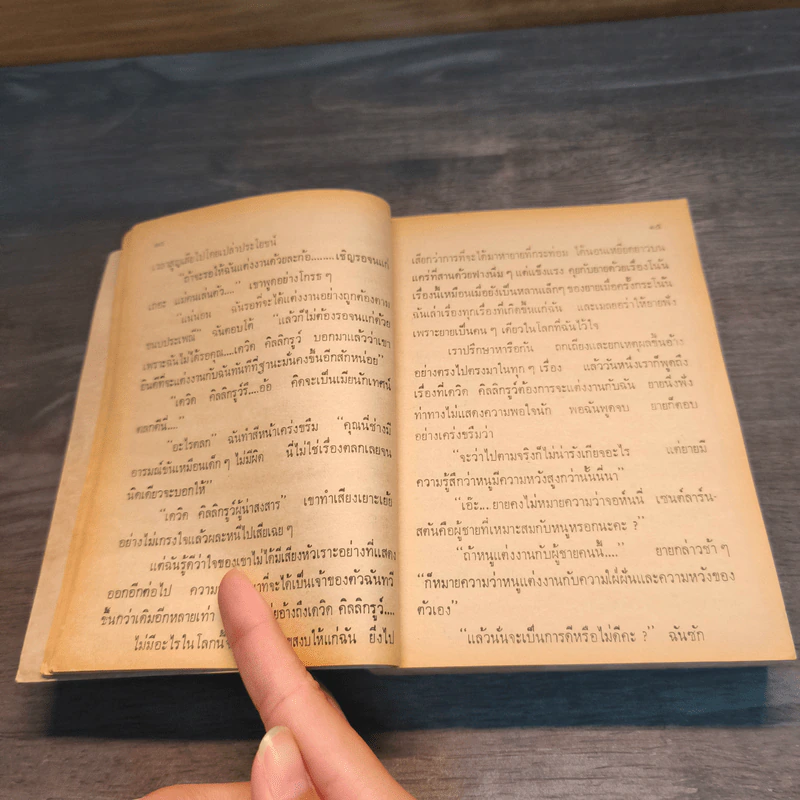 ๒๔
จะมาสูญเสียไปโดยเปล่าประโยชน์
"ถ้าจะรอให้ฉันแต่งงานด้วยละก้อ........เชิญรอจนแก่
เถอะ แม่คนแสนดี...." เขาพูดอย่างโกรธ ๆ
"แน่นอน ฉันรอที่จะได้แต่งงานอย่างถูกต้องตาม
ขนบประเพณี" ฉันตอบโต้ "แล้วก็ไม่ต้องรอจนแก่ด้วย
เพราะฉันไม่ได้รอคุณ....เดวิด คิลลิกรูว์ บอกมาแล้วว่าเขา
ยินดีที่จะแต่งงานกับฉันทันทีที่ฐานะมั่นคงขึ้นอีกสักหน่อย"
"เดวิด คิลลิกรูว์รึ....อ้อ คิดจะเป็นเมียนักเทศน์
ตลกดีนี่...."
"อะไรตลก" ฉันทำสีหน้าเคร่งขรึม "คุณนี่ช่างมี
อารมณ์ขันเหมือนเด็ก ๆ ไม่มีผิด นี่ไม่ใช่เรื่องตลกเลยจน
นิดเดียวจะบอกให้"
"เดวิด คิลลิกรูว์ผู้น่าสงสาร" เขาทำเสียงเยาะเย้ย
อย่างไม่เกรงใจแล้วผละหนีไปเสียเฉย ๆ
แต่ฉันรู้ดีว่าใจของเขาไม่ได้มีเสียงหัวเราะอย่างที่แสดง
ออกอีกต่อไป ความ ที่จะได้เป็นเจ้าของตัวฉันทวี
ขึ้นกว่าเดิมอีกหลายเท่า อ้างถึงเดวิด คิลลิกรูว์....
ไม่มีอะไรในโลกนี้ สงบให้แก่ฉัน ยิ่งไป
๒๕
เลือกว่าการที่จะได้มาหายายที่กระท่อม ได้นอนเหยียดยาวบน
แคร่ที่สานด้วยฟางนิ่ม ๆ แต่แข็งแรง คุยกับยายด้วยเรื่องโน้น
เรื่องนี้เหมือนเมื่อยังเป็นหลานเล็กๆ ของยายเมื่อครั้งกระโน้น
ฉันเล่าเรื่องทุกเรื่องที่เกิดขึ้นแก่ฉัน และเมลลอร่าให้ยายฟัง
เพราะยายเป็นคน ๆ เดียวในโลกที่ฉันไว้ใจ
เราปรึกษาหารือกัน ถกเถียงและยกเหตุผลขึ้นอ้าง
อย่างตรงไปตรงมาในทุก ๆ เรื่อง แล้ววันหนึ่งเราก็พูดถึง
เรื่องที่เดวิด คิลลิกรูว์ต้องการจะแต่งงานกับฉัน ยายนิ่งฟัง
ท่าทางไม่แสดงความพอใจนัก พอฉันพูดจบ ยายก็ตอบ
อย่างเคร่งขรึมว่า
"จะว่าไปตามจริงก็ไม่น่ารังเกียจอะไร แต่ยายมี
ความรู้สึกว่าหนูมีความหวังสูงกว่านั้นนี่นา"
"เอ๊ะ... ยายคงไม่หมายความว่าจอห์นนี่ เซนต์ลาร์น-
สตันคือผู้ชายที่เหมาะสมกับหนูหรอกนะคะ ?"
"ถ้าหนูแต่งงานกับผู้ชายคนนี้...." ยายกล่าวช้า ๆ
"ก็หมายความว่าหนูแต่งงานกับความใฝ่ฝันและความหวังของ
ตัวเอง"
"แล้วนั่นจะเป็นการดีหรือไม่ดีคะ ?" ฉันซัก